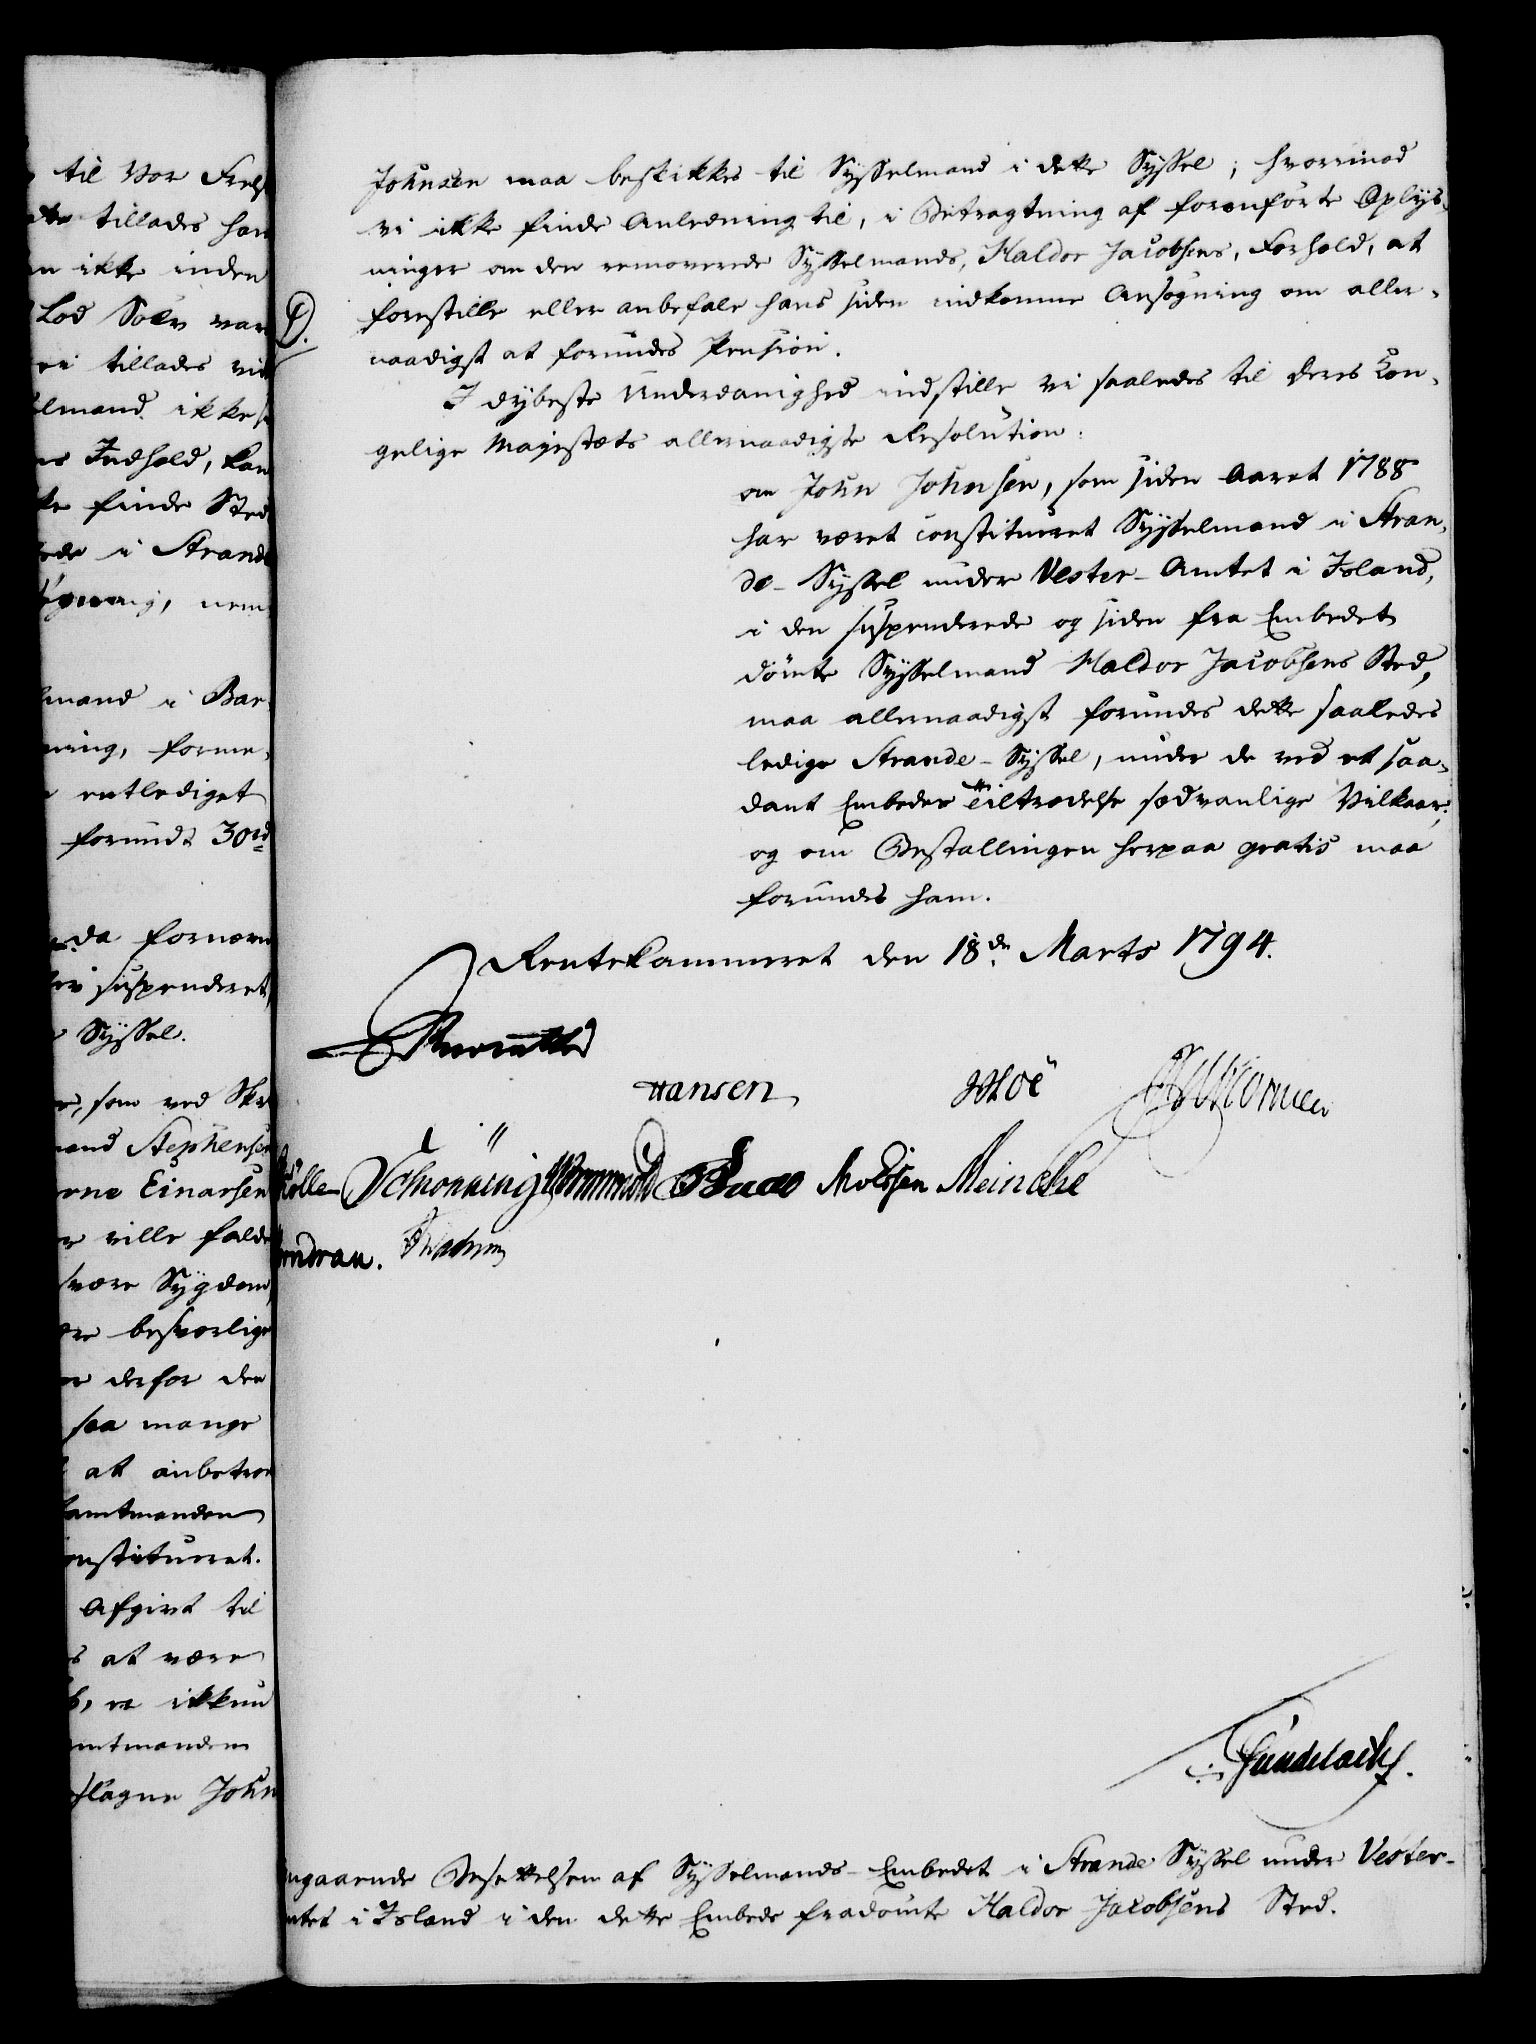 til Vor Frels
tillades han
ikke inden
Lod Sølv var
tillades
elmand ikke
Indhold, kan
finde Sted
i Strande
nem
mand i Bar-
ning, forme-
entlediget
forundt 30rd
da fornævn
suspenderet,
Syssel.
som ved Skr
mand Stephensen
Einarsen
ville falde
svære Sygdom,
besværlige
derfor den
saa mange
at anbetroe
amtmanden
onstitueret.
Afgivt til
at være
ikkun
mtmanden
John
Johnsen maa beskikkes til Sysselmand i dette Syssel; hvorimod
vi ikke finde Anledning til, i Betragtning af foranførte Oplys-
ninger om den removerede Sysselmands, Haldor Jacobsens, Forhold, at
forestille eller anbefale hans siden indkomne Ansøgning om aller-
naadigst at forundes Pension.
I dybeste Underdanighed indstille vi saaledes til Deres Kon-
gelige Majestæts allernaadigste Resolution:
om John Johnsen, som siden Aaret 1788
har været constitueret Sysselmand i Stran-
de-Syssel under Vester-Amtet i Island,
i den suspenderede og siden fra Embedet
dömte Sysselmand Haldor Jacobsens Sted,
maa allernaadigst forundes dette saaledes
ledige Strande-Syssel, under de ved et saa-
dant Embedes Tiltrædelse sædvanlige Vilkaar;
og om Bestallingen herpaa gratis maa
forundes ham.
Rentekammeret den 18de Marts 1794.
Hansen
Schönning Wormskiold Molssen Meincke
Wadum
Gundelach.
ngaaende Besættelsen af Sysselmands-Embedet i Strande Syssel under Vester-
mtet i Island i den dette Embede fradömte Haldor Jacobsens Sted.